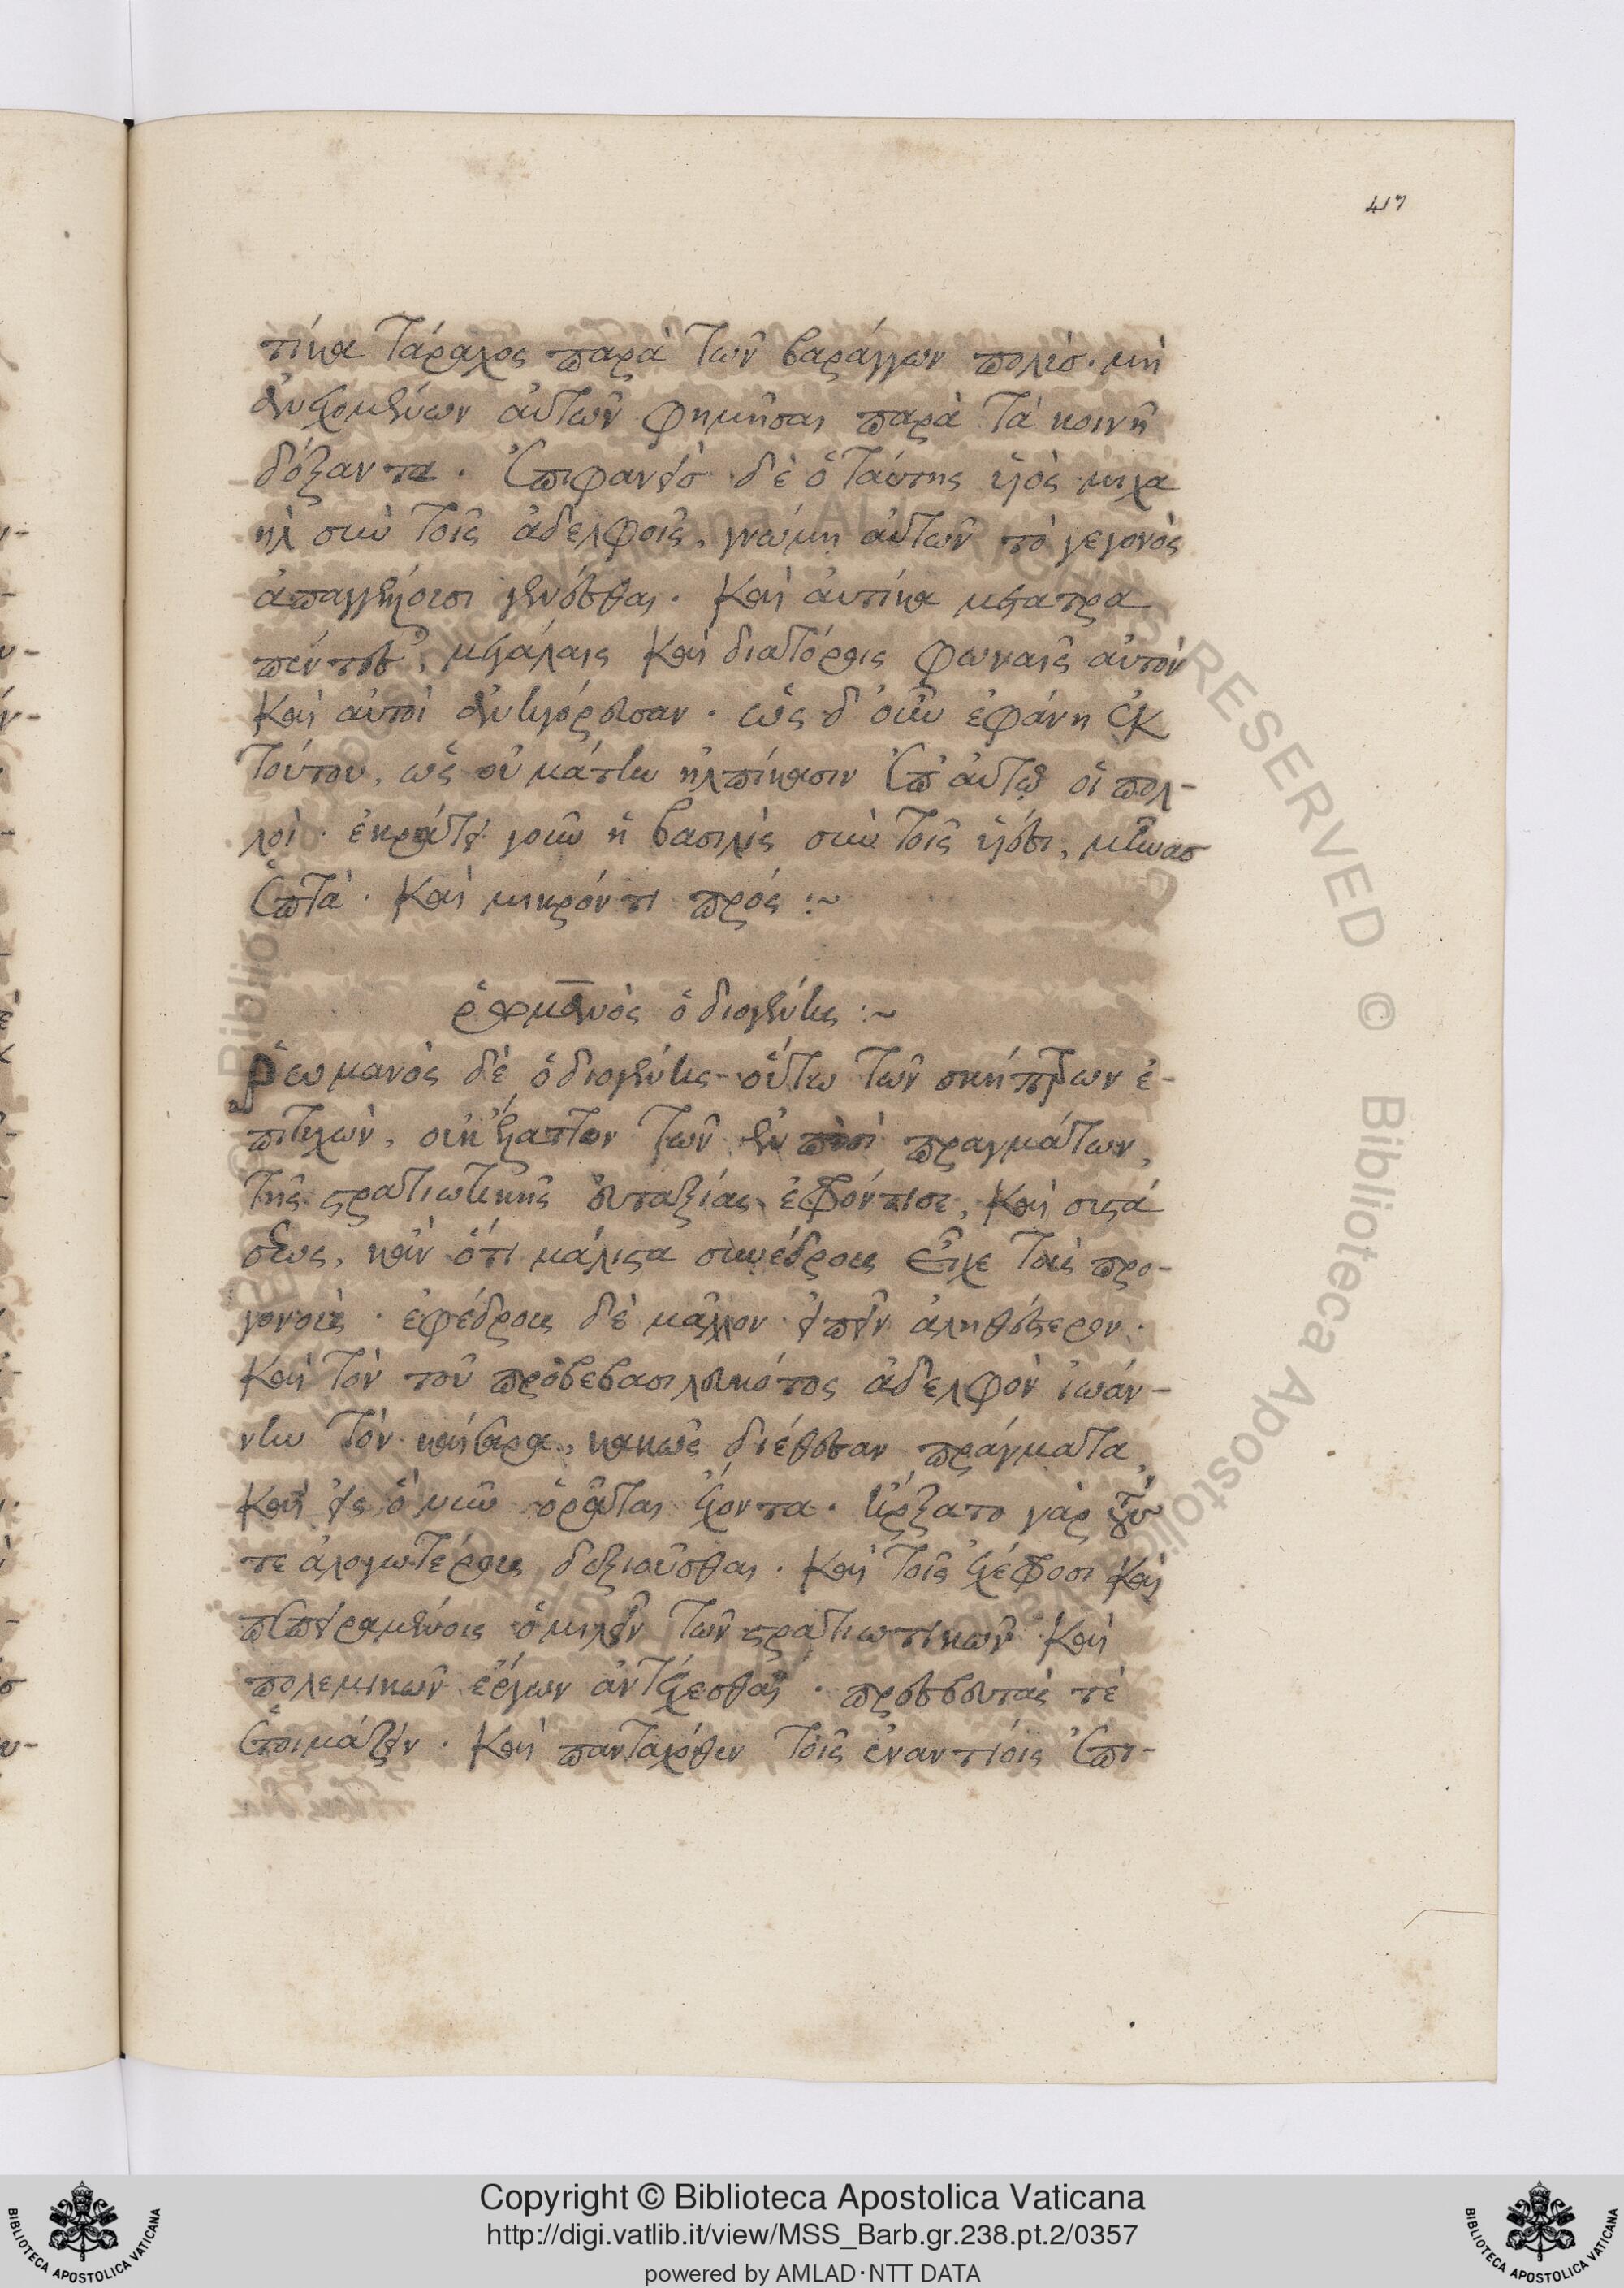 417
τίκα τάραχος παρὰ τῶν βαράγγων πολὺσ. μὴ
ἀνεχομένων αὐτῶν φημῆσαι παρὰ τὰ κοινῆ
δόξαντα. ἐπιφανεὶσ δὲ ὁ ταύτης υἱὸς μιχα
ὴλ σὺν τοῖς ἀδελφοῖς, γνώμη αὐτῶν τὸ γεγονὸς
ἀπαγγέλουσι γενέσθαι. καὶ αὐτίκα μετατρα
πέντες, μεγάλαις καὶ διατόροις φωναῖς αὐτὸν
καὶ αὐτοὶ ἀνηγόρευσαν. ὡς δ' οὖν ἐφάνη ἐκ
τούτου, ὡς οὐ μάτην ἠλπίκασιν ἐπ' αὐτῷ οἱ πολ-
λοὶ. ἐκράτει γοῦν ἡ βασιλὶς σὺν τοῖς υἱέσι, μῆνασ
ἑπτὰ. καὶ μικρόν τι πρός :~
ῥωμανὸς ὁ διογένης :~
Ῥωμανὸς δὲ ὁ διογένης οὕτω τῶν σκήπτρων ἐ-
πιτυχὼν, οὐκ ἔλαττον τῶν ἐν ποσὶ πραγμάτων,
τῆς στρατιωτικῆς εὐταξίας ἐφρόντισε, καὶ συστά
σεως, κἂν ὅτι μάλιστα συνέδρους εἶχε τοὺς προ-
γονοὺς. ἐφέδρους δὲ μᾶλλον εἰπεῖν ἀληθέστερον.
καὶ τὸν τοῦ προβεβασιλευκότος ἀδελφὸν ἰωάν-
νην τὸν καίσαρα, κακῶς διέθεσαν πράγματα,
καὶ εἰς ὃ νῦν ὁρᾶται ἔχοντα. ἤρξατο γὰρ τούσ
τε ἀλογωτέρους δεξιοῦσθαι. καὶ τοῖς ἐχέφροσι καὶ
πεπειραμένοις ὁμιλεῖν τῶν στρατιωτικῶν καὶ
πολεμικῶν ἔργων ἀντέχεσθαι. πρέσβευτάς τὲ
ἑτοιμάζειν. καὶ πανταχόθεν τοῖς ἐναντίοις ἐπι-
Copyright © Biblioteca Apostolica Vaticana
http://digi.vatlib.it/view/MSS_Barb.gr.238.pt.2/0357
powered by AMLAD·NTT DATA